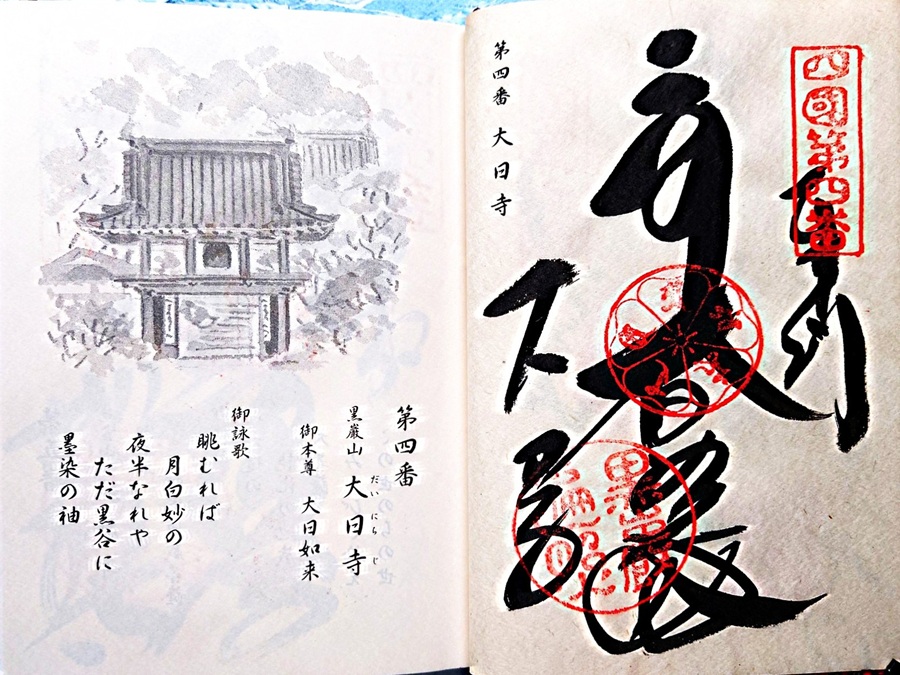 四國第四番
奉納
第四番 大日寺
第四番
黒巌山 大日寺
だいにちじ
御本尊 大日如来
御詠歌
眺むれば
月白妙の
夜半なれや
ただ黒谷に
墨染の袖